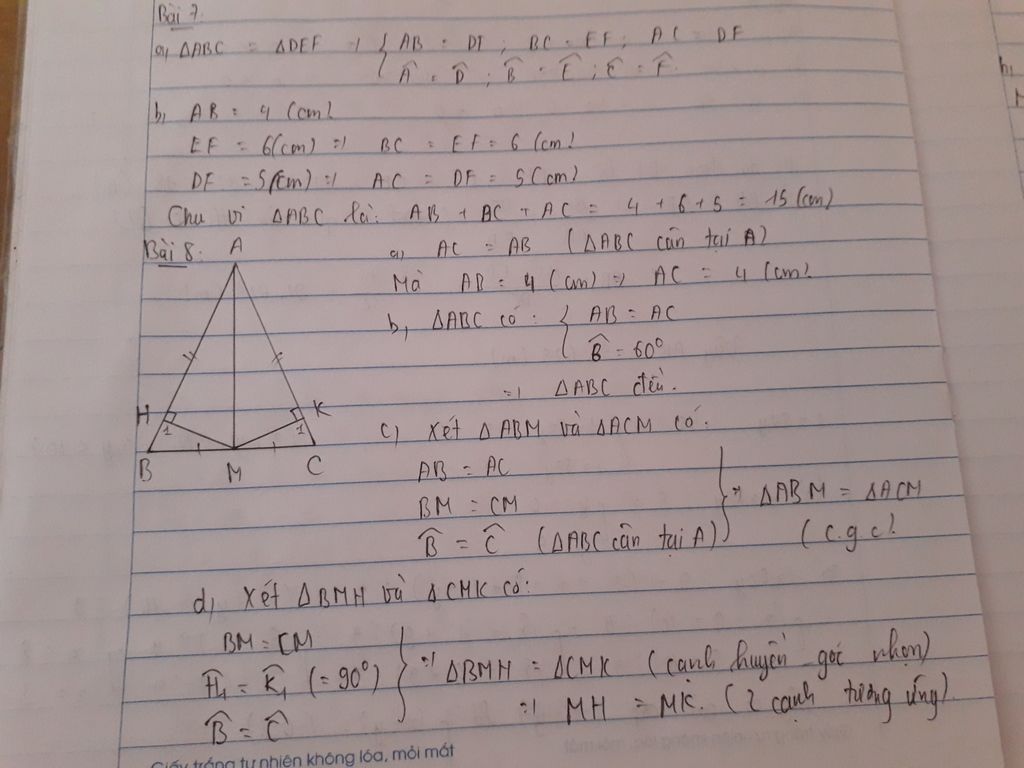 Bài 7.
a, ΔABC = ΔDEF => { AB = DE ; BC = EF ; AC = DF
Â = D̂ ; B̂ = Ê ; Ĉ = F̂.
b, AB = 4 (cm)
EF = 6(cm) => BC = EF = 6 (cm)
DF = 5(cm) => AC = DF = 5 (cm)
Chu vi ΔABC là: AB + BC + AC = 4 + 6 + 5 = 15 (cm)
Bài 8:
A
H
K
1
1
B
M
C
a, AC = AB (ΔABC cân tại A)
Mà AB = 4 (cm) => AC = 4 (cm)
b, ΔABC có: { AB = AC
B̂ = 60°
=> ΔABC đều.
c) Xét ΔABM và ΔACM có:
AB = AC
BM = CM } => ΔABM = ΔACM
B̂ = Ĉ (ΔABC cân tại A) (c.g.c)
d, Xét ΔBMH và ΔCMK có:
BM = CM
Ĥ₁ = K̂₁ (= 90°) } => ΔBMH = ΔCMK (cạnh huyền góc nhọn)
B̂ = Ĉ => MH = MK. (2 cạnh tương ứng).
Giấy trắng tự nhiên không lóa, mỏi mắt
b,